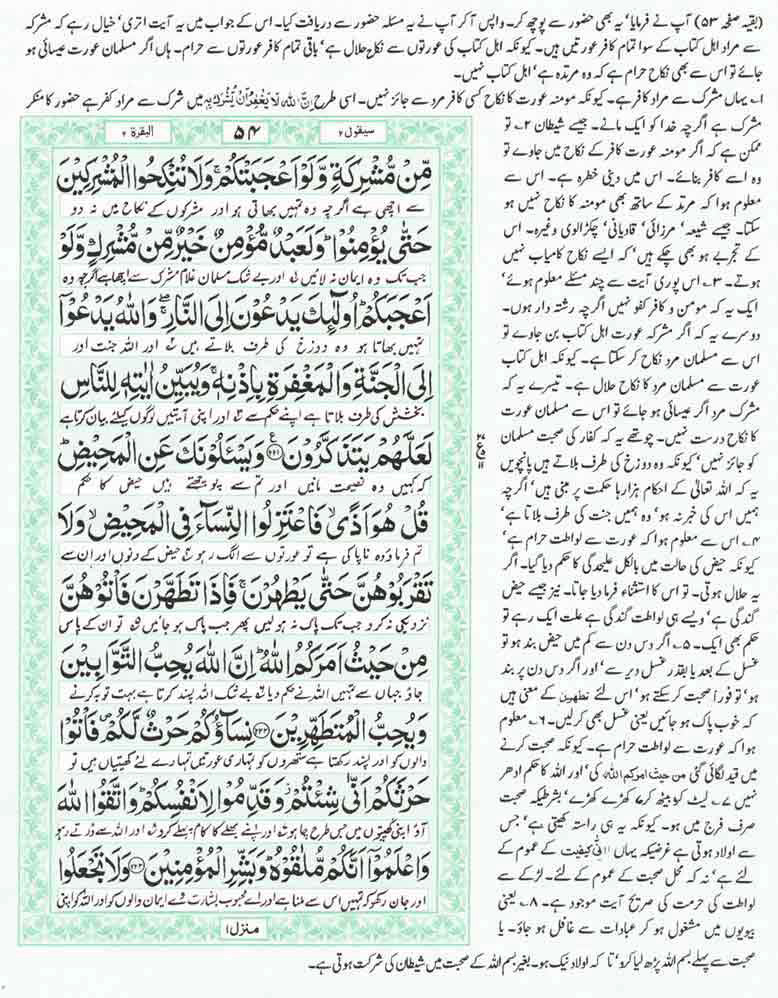 (بقیہ صفحہ ۵۳) آپ نے فرمایا' یہ بھی حضور سے پوچھ کر۔ واپس آ کر آپ نے یہ مسئلہ حضور سے دریافت کیا۔ اس کے جواب میں یہ آیت اتری' خیال رہے کہ مشرکہ
سے مراد اہل کتاب کے سوا تمام کافر عورتیں ہیں۔ کیونکہ اہل کتاب کی عورتوں سے نکاح حلال ہے' باقی تمام کافر عورتوں سے حرام۔ ہاں اگر مسلمان عورت عیسائی ہو
جائے تو اس سے بھی نکاح حرام ہے کہ وہ مرتدہ ہے' اہل کتاب نہیں۔
۱؎ یہاں مشرک سے مراد کافر ہے۔ کیونکہ مومنہ عورت کا نکاح کسی کافر مرد سے جائز نہیں۔ اسی طرح اِنَّ اللہَ لَا یَغْفِرُ اَنْ یُّشْرَکَ بِہٖ میں شرک سے مراد کفر ہے حضور کا منکر
مشرک ہے اگرچہ خدا کو ایک مانے۔ جیسے شیطان ۲؎ تو
ممکن ہے کہ اگر مومنہ عورت کافر کے نکاح میں جاوے تو
وہ اسے کافر بنائے۔ اس میں دینی خطرہ ہے۔ اس سے
معلوم ہوا کہ مرتد کے ساتھ بھی مومنہ کا نکاح نہیں ہو
سکتا۔ جیسے شیعہ' مرزائی' قادیانی' چکڑالوی وغیرہ۔ اس
کے تجربے ہو بھی چکے ہیں' کہ ایسے نکاح کامیاب نہیں
ہوتے۔ ۳؎ اس پوری آیت سے چند مسئلے معلوم ہوئے'
ایک یہ کہ مومن و کافر کفو نہیں اگرچہ رشتہ دار ہوں۔
دوسرے یہ کہ اگر مشرکہ عورت اہل کتاب بن جاوے تو
اس سے مسلمان مرد نکاح کر سکتا ہے۔ کیونکہ اہل کتاب
عورت سے مسلمان مرد کا نکاح حلال ہے۔ تیسرے یہ کہ
مشرک مرد اگر عیسائی ہو جائے تو اس سے مسلمان عورت
کا نکاح درست نہیں۔ چوتھے یہ کہ کفار کی صحبت مسلمان
کو جائز نہیں' کیونکہ وہ دوزخ کی طرف بلاتے ہیں پانچویں
یہ کہ اللہ تعالیٰ کے احکام ہزارہا حکمت پر مبنی ہیں' اگرچہ
ہمیں اس کی خبر نہ ہو' وہ ہمیں جنت کی طرف بلاتا ہے'
۴؎ اس سے معلوم ہوا کہ عورت سے لواطت حرام ہے'
کیونکہ حیض کی حالت میں بالکل علیحدگی کا حکم دیا گیا۔ اگر
یہ حلال ہوتی۔ تو اس کا استثناء فرما دیا جاتا۔ نیز جیسے حیض
گندگی ہے' ویسے ہی لواطت گندگی ہے علت ایک رہے تو
حکم بھی ایک۔ ۵؎ اگر دس دن سے کم میں حیض بند ہو تو
غسل کے بعد یا بقدر غسل دیر سے' اور اگر دس دن پر بند
ہو' تو فورا" صحبت کر سکتے ہو' اس لئے تطھرن کے معنی ہیں
کہ خوب پاک ہو جائیں یعنی غسل بھی کر لیں۔ ۶؎ معلوم
ہوا کہ عورت سے لواطت حرام ہے۔ کیونکہ صحبت کرنے
میں قید لگائی گئی مِن حیثُ امرکم اللہ کی' اور اللہ کا حکم ادھر
نہیں ۷؎ لیٹ کر بیٹھ کر کھڑے کھڑے' بشرطیکہ صحبت
صرف فرج میں ہو۔ کیونکہ یہ ہی راستہ کھیتی ہے' جس
سے اولاد ہوتی ہے غرضیکہ یہاں اَنّٰی کیفیت کے عموم کے
لئے ہے' نہ کہ محل صحبت کے عموم کے لئے۔ لڑکے سے
لواطت کی حرمت کی صریح آیت موجود ہے۔ ۸؎ یعنی
بیویوں میں مشغول ہو کر عبادات سے غافل نہ ہو جاؤ۔ یا
صحبت سے پہلے بسم اللہ پڑھ لیا کرو' تا کہ اولاد نیک ہو۔ بغیر بسم اللہ کے صحبت میں شیطان کی شرکت ہوتی ہے۔
سیقول ۲ ۵۴ البقرۃ ۲
مِّنْ مُّشْرِكَةٍ وَّلَوْ اَعْجَبَتْكُمْ ۚ وَلَا تُنْكِحُوا الْمُشْرِكِيْنَ
سے اچھی ہے اگرچہ وہ تمہیں بھاتی ہو اور مشرکوں کے نکاح میں نہ دو
حَتّٰى يُؤْمِنُوْا ؕ وَلَعَبْدٌ مُّؤْمِنٌ خَيْرٌ مِّنْ مُّشْرِكٍ وَّلَوْ
جب تک وہ ایمان نہ لائیں اور بے شک مسلمان غلام مشرک سے اچھا ہے اگرچہ وہ
اَعْجَبَكُمْ ؕ اُولٰٓئِكَ يَدْعُوْنَ اِلَى النَّارِ ۖۚ وَاللّٰهُ يَدْعُوْٓا
تمہیں بھاتا ہو وہ دوزخ کی طرف بلاتے ہیں اور اللہ جنت اور
اِلَى الْجَنَّةِ وَالْمَغْفِرَةِ بِاِذْنِهٖ ۚ وَيُبَيِّنُ اٰيٰتِهٖ لِلنَّاسِ
بخشش کی طرف بلاتا ہے اپنے حکم سے اور اپنی آیتیں لوگوں کیلئے بیان کرتا ہے
لَعَلَّهُمْ يَتَذَكَّرُوْنَ ﴿۲۲۱﴾ وَيَسْـَٔلُوْنَكَ عَنِ الْمَحِيْضِ ؕ
کہ کہیں وہ نصیحت مانیں اور تم سے پوچھتے ہیں حیض کا حکم
قُلْ هُوَ اَذًى ۙ فَاعْتَزِلُوا النِّسَآءَ فِى الْمَحِيْضِ ۙ وَلَا
تم فرماؤ وہ ناپاکی ہے تو عورتوں سے الگ رہو حیض کے دنوں اور ان سے
تَقْرَبُوْهُنَّ حَتّٰى يَطْهُرْنَ ۚ فَاِذَا تَطَهَّرْنَ فَاْتُوْهُنَّ
نزدیکی نہ کرو جب تک پاک نہ ہو لیں پھر جب پاک ہو جائیں تو ان کے پاس
مِنْ حَيْثُ اَمَرَكُمُ اللّٰهُ ؕ اِنَّ اللّٰهَ يُحِبُّ التَّوَّابِيْنَ
جاؤ جہاں سے تمہیں اللہ نے حکم دیا بے شک اللہ پسند کرتا ہے بہت توبہ کرنے
وَيُحِبُّ الْمُتَطَهِّرِيْنَ ﴿۲۲۲﴾ نِسَآؤُكُمْ حَرْثٌ لَّكُمْ ۪ فَاْتُوْا
والوں کو اور پسند رکھتا ہے ستھروں کو تمہاری عورتیں تمہارے لئے کھیتیاں ہیں تو
حَرْثَكُمْ اَنّٰى شِئْتُمْ ؗ وَقَدِّمُوْا لِاَنْفُسِكُمْ ؕ وَاتَّقُوا اللّٰهَ
آؤ اپنی کھیتیوں میں جس طرح چاہو اور اپنے بھلے کا کام پہلے کرو اور اللہ سے ڈرتے رہو
وَاعْلَمُوْٓا اَنَّكُمْ مُّلٰقُوْهُ ؕ وَبَشِّرِ الْمُؤْمِنِيْنَ ﴿۲۲۳﴾ وَلَا تَجْعَلُوا
اور جان رکھو کہ تمہیں اس سے ملنا ہے اور اے محبوب بشارت دو ایمان والوں کو اور اللہ کو اپنی
منزل ۱